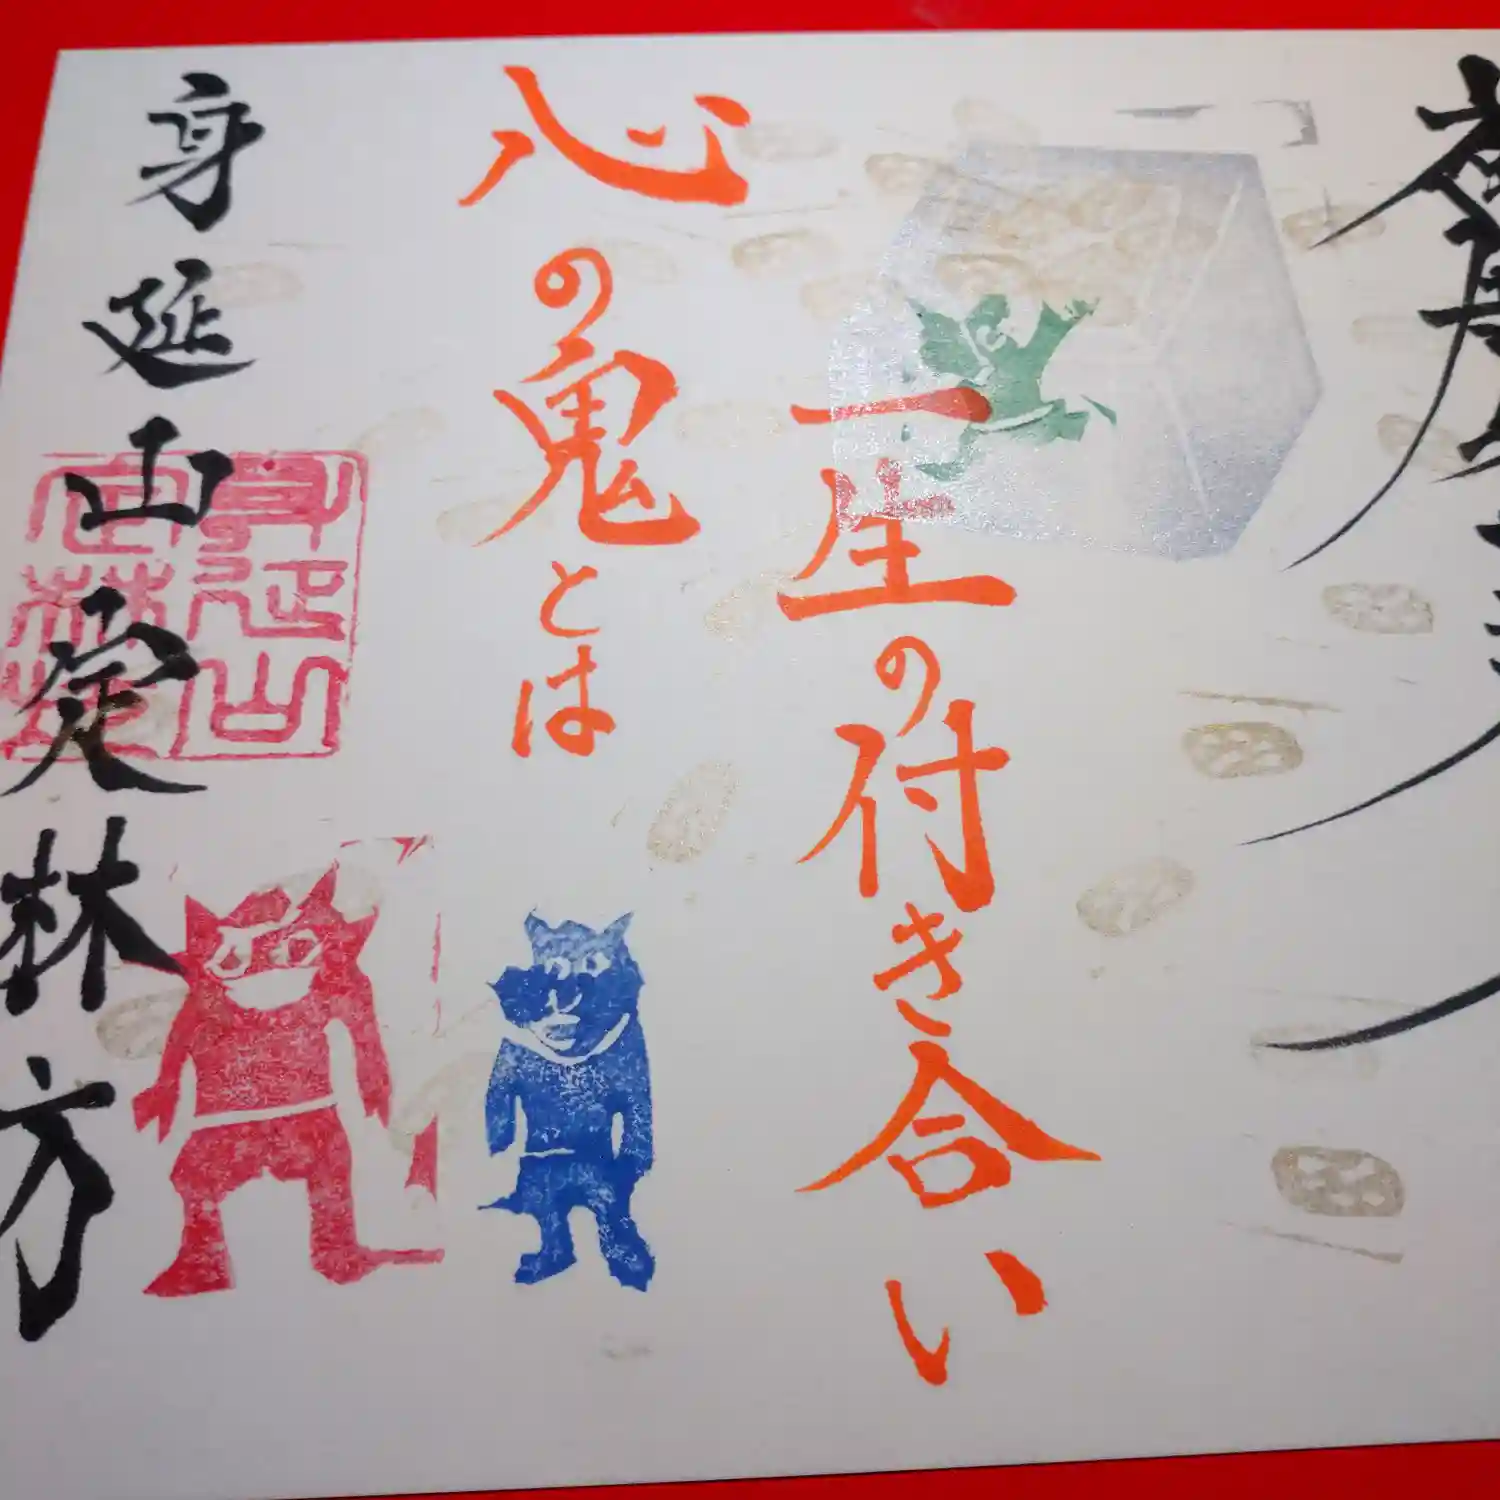 一生の付き合い
心の鬼とは
身延山定林坊
身延山
定林坊